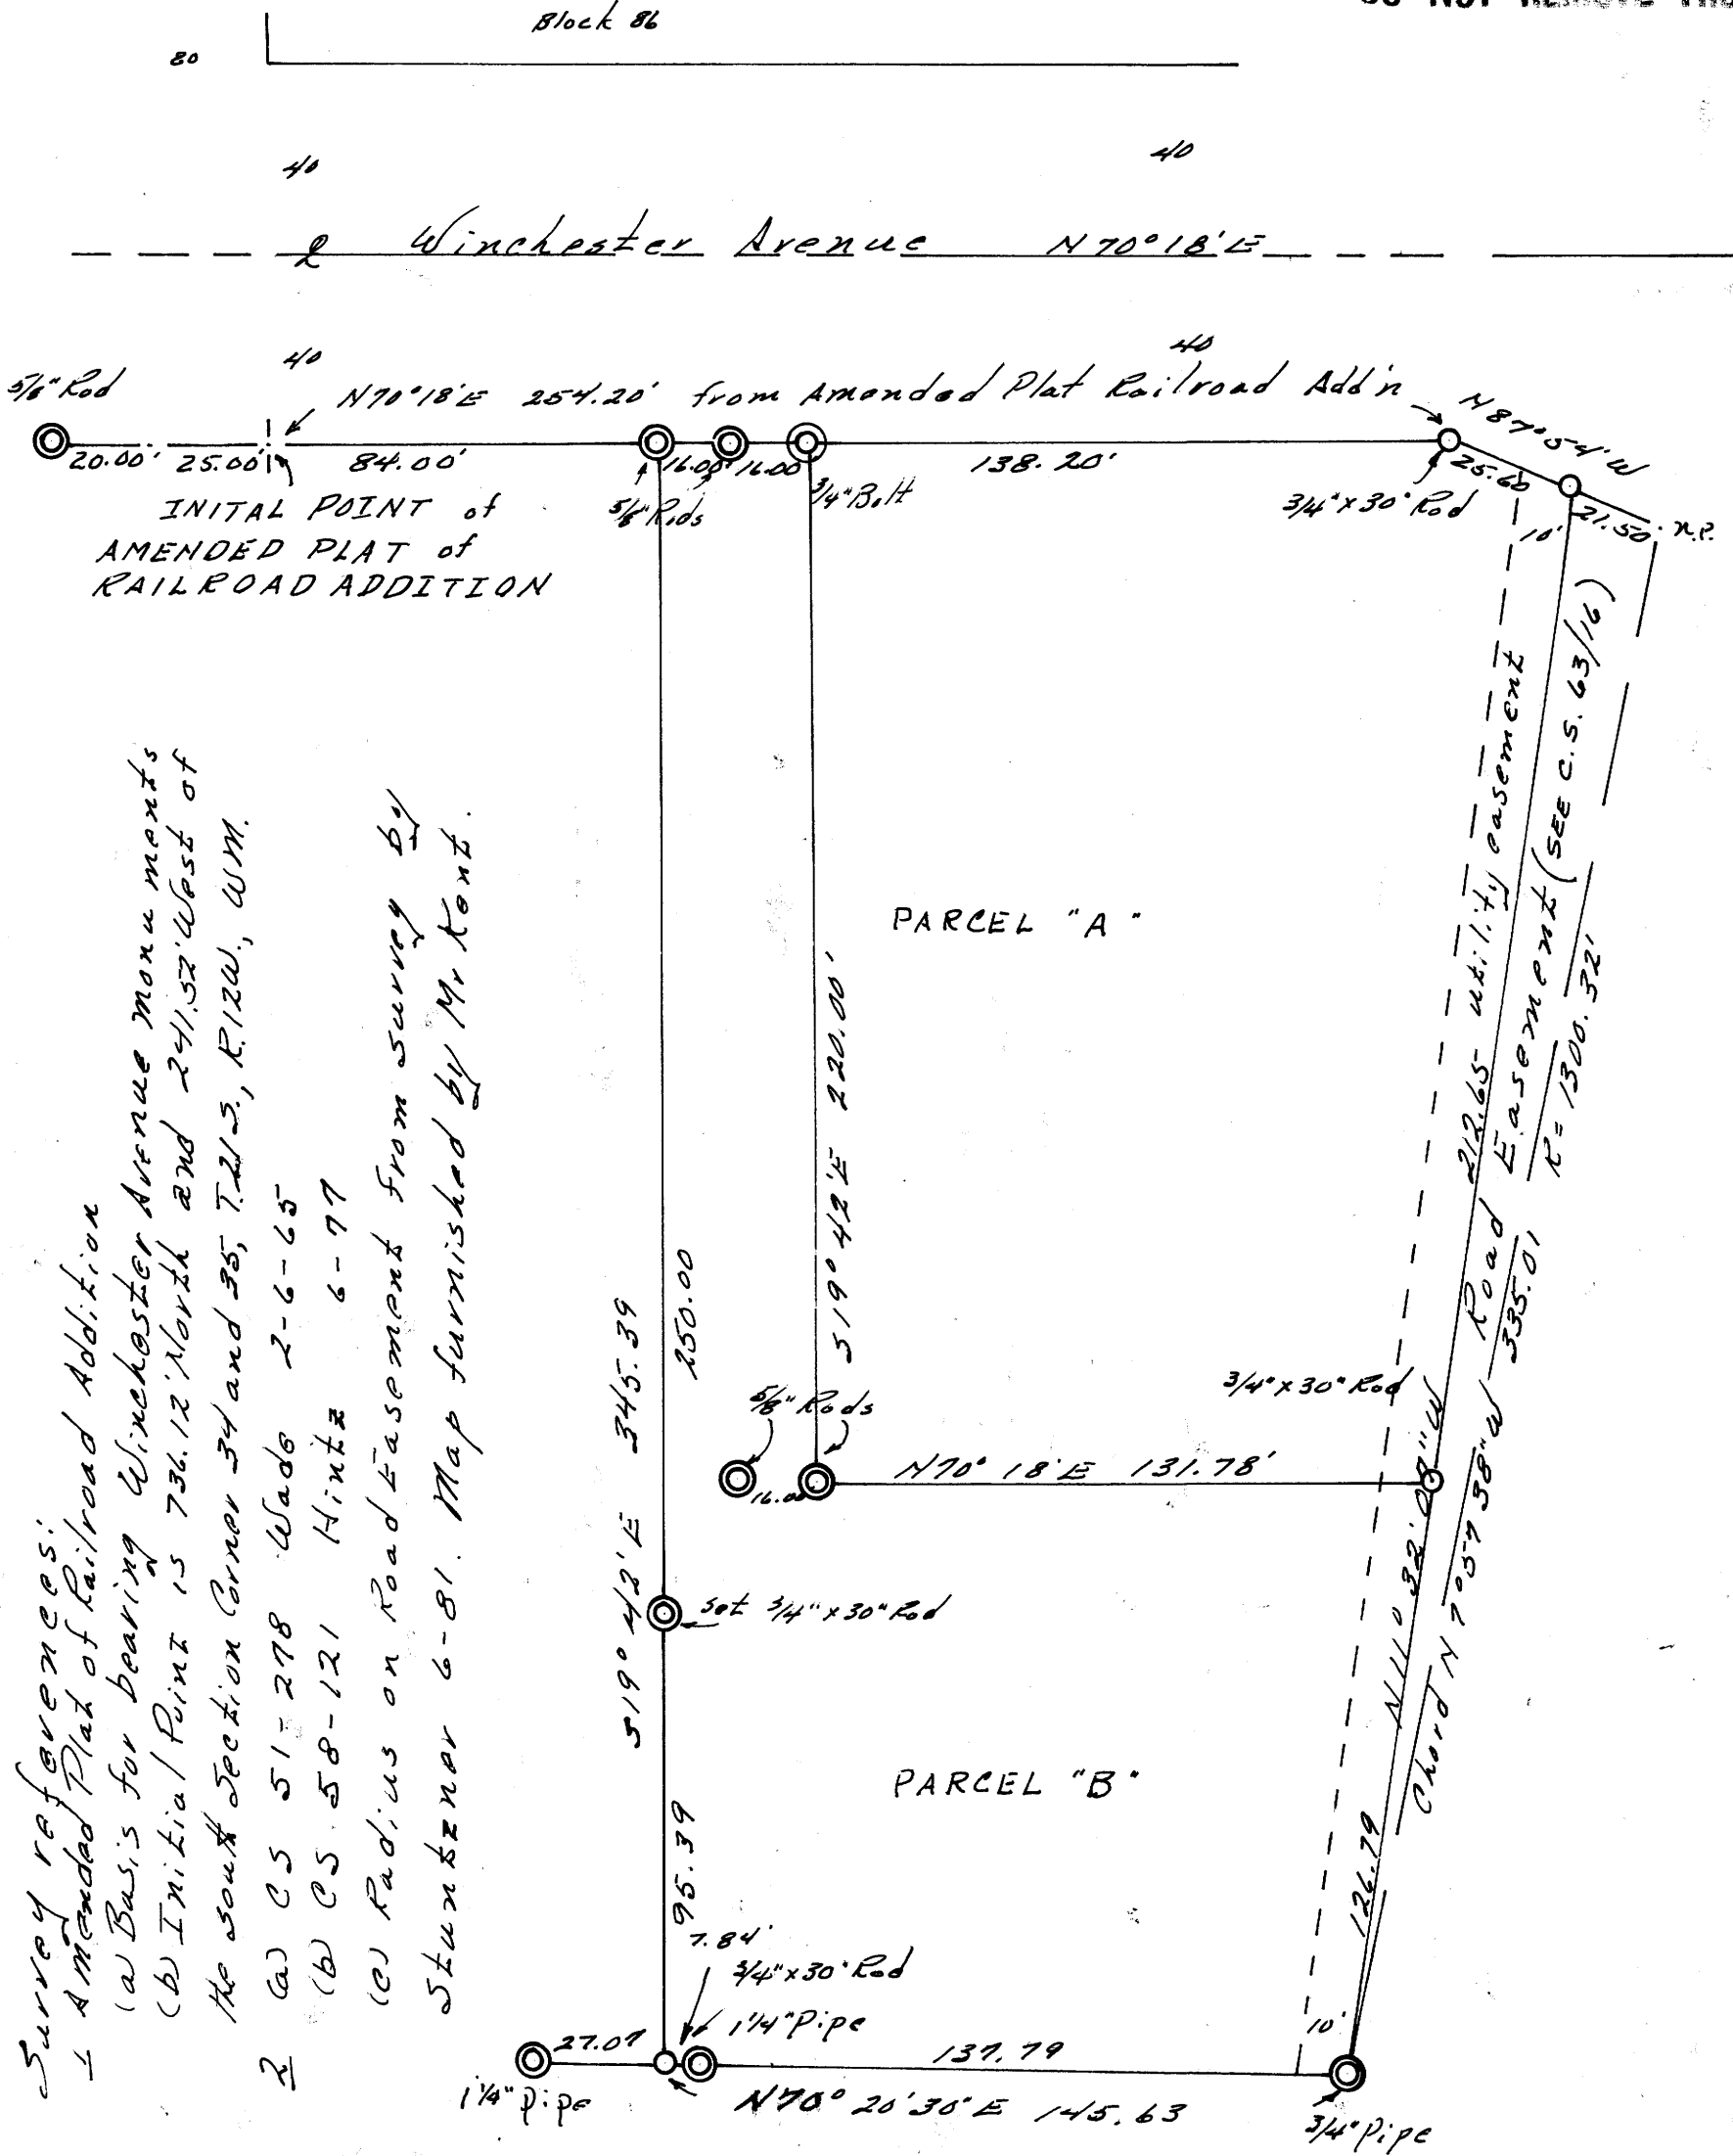 DO NOT REMOVE
Block 86
80
40
40
Winchester Avenue N70°18'E
40
40
5/8" Rod
N70°18'E 254.20' from Amended Plat Railroad Add'n
N87°54'W
20.00'
25.00'
84.00'
16.00'
16.00
138.20'
25.60
21.50
n.p.
5/8" Rods
3/4" Bolt
3/4" x 30" Rod
10'
INITAL POINT of
AMENDED PLAT of
RAILROAD ADDITION
212.65 utility easement
Road Easement (SEE C.S. 63/16)
R= 1300.32'
PARCEL "A"
S19°42'E 220.00'
S19°42'E 345.39
250.00
5/8" Rods
3/4" x 30" Rod
16.00
N70°18'E 131.78'
set 3/4" x 30" Rod
N11°32'08"W
Chord N7°57'38"W 335.01
PARCEL "B"
95.39
126.79
7.84'
3/4" x 30" Rod
1 1/4" Pipe
10'
27.07
137.79
1 1/4" Pipe
N70°20'30"E 145.63
3/4" Pipe
Survey references:
1 Amended Plat of Railroad Addition
(a) Basis for bearing Winchester Avenue monuments
(b) Initial Point is 736.12' North and 241.52' West of
the south Section Corner 34 and 35, T.21S., R.12W., WM.
2 (a) CS 51-278 Wade 2-6-65
(b) CS 58-121 Hintz 6-77
(c) Radius on Road Easement from survey by
Stuntzner 6-81. Map furnished by Mr Kent.